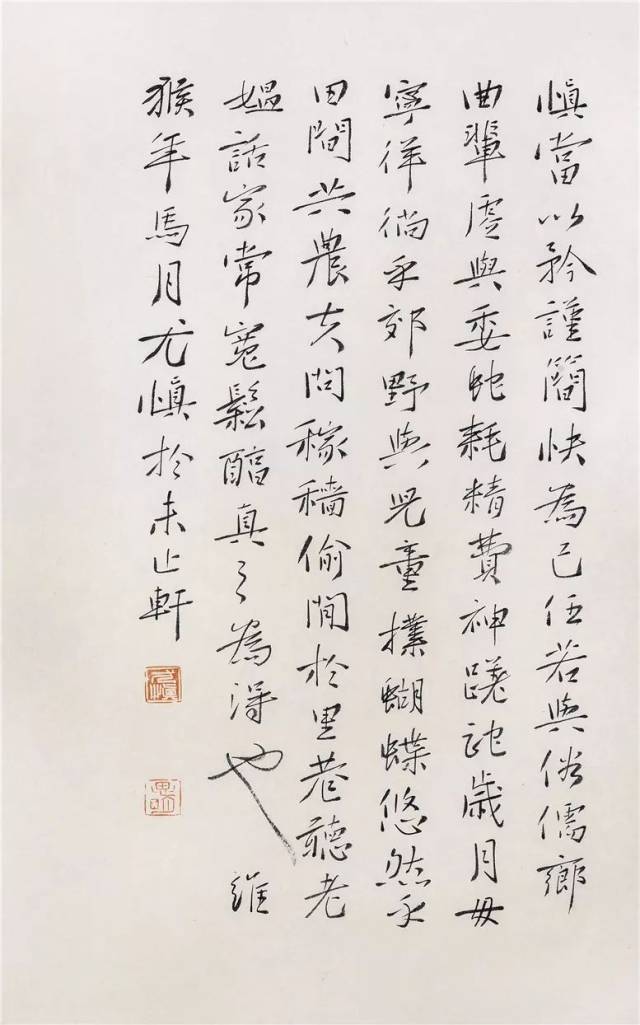 慎當以矜謹簡快為己任若與俗儒鄉
曲輩虛與委蛇耗精費神蹉跎歲月毋
寧徉徜乎郊野與兒童撲蝴蝶悠然乎
田間共農夫問稼穡偷閒於里巷聽老
媼話家常寬鬆醕真之為得也 維
猴年馬月尤慎於未止軒